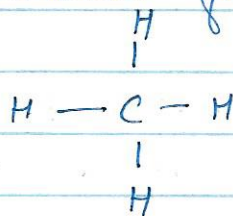 H
|
H — C — H
|
H